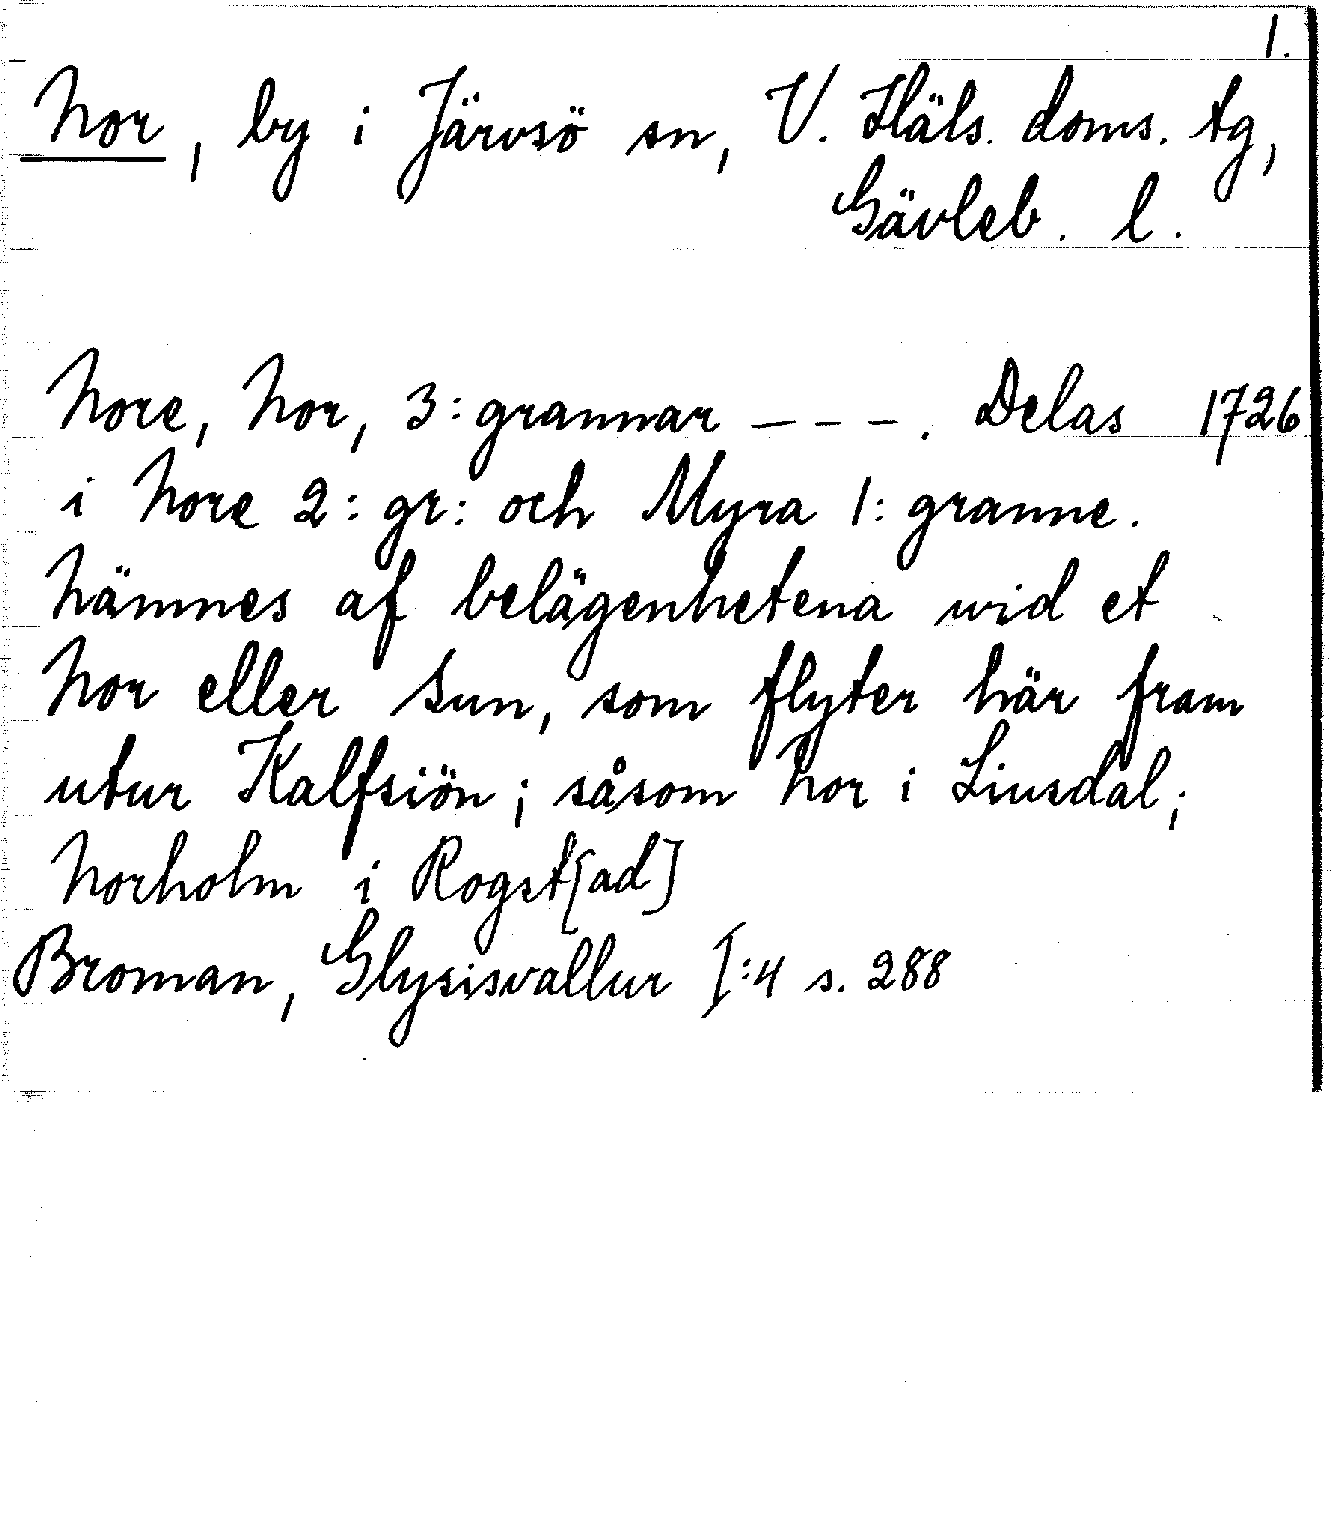 1.
Nor, by i Järvsö sn, V. Häls. doms. tg,
Gävleb. l.
Nore, Nor, 3:grannar ---. Delas 1726
i Nore 2:gr: och Myra 1:granne.
Nämnes af belägenhetena wid et
Nor eller Sun, som flyter här fram
utur Kalfsiön; såsom Nor i Liusdal;
Norholm i Rogst[ad]
Broman, Glysisvallur I:4 s. 288